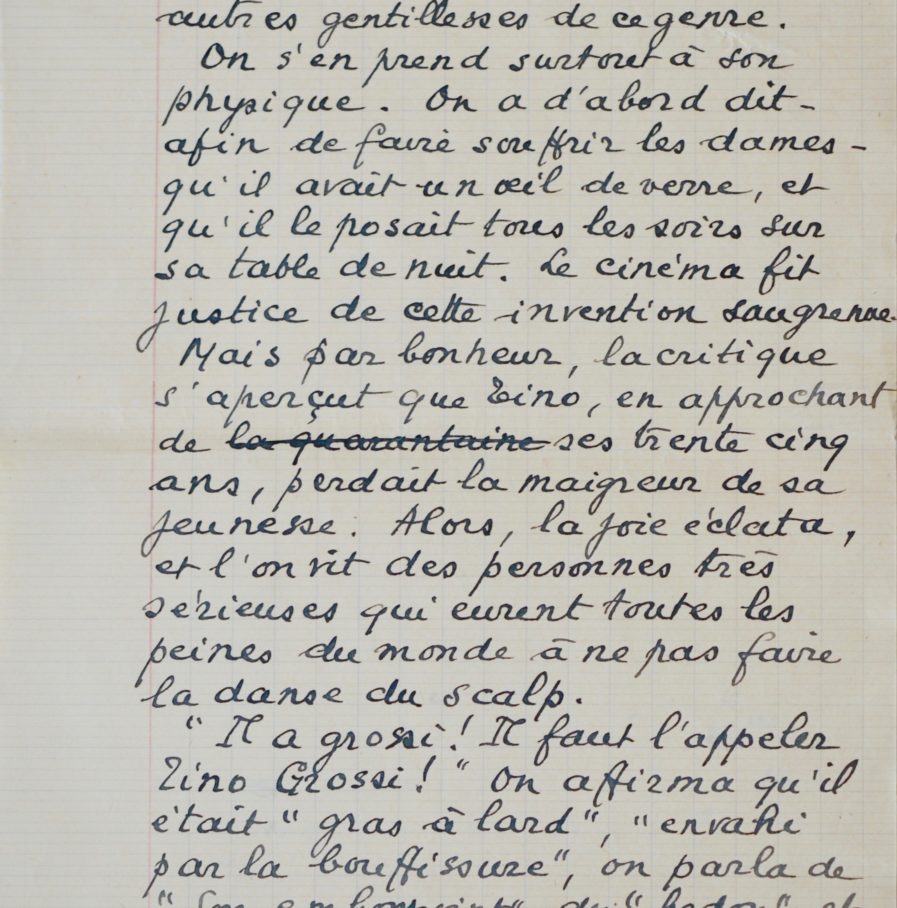 autres gentillesses de ce genre.
On s'en prend surtout à son
physique. On a d'abord dit -
afin de faire souffrir les dames -
qu'il avait un œil de verre, et
qu'il le posait tous les soirs sur
sa table de nuit. Le cinéma fit
justice de cette invention saugrenue.
Mais par bonheur, la critique
s'aperçut que Tino, en approchant
de la quarantaine ses trente cinq
ans, perdait la maigreur de sa
jeunesse. Alors, la joie éclata,
et l'on vit des personnes très
sérieuses qui eurent toutes les
peines du monde à ne pas faire
la danse du scalp.
"Il a grossi! Il faut l'appeler
Tino Grossi!" On affirma qu'il
était "gras à lard", "envahi
par la bouffissure", on parla de
"son embonpoint" du "bedon" et